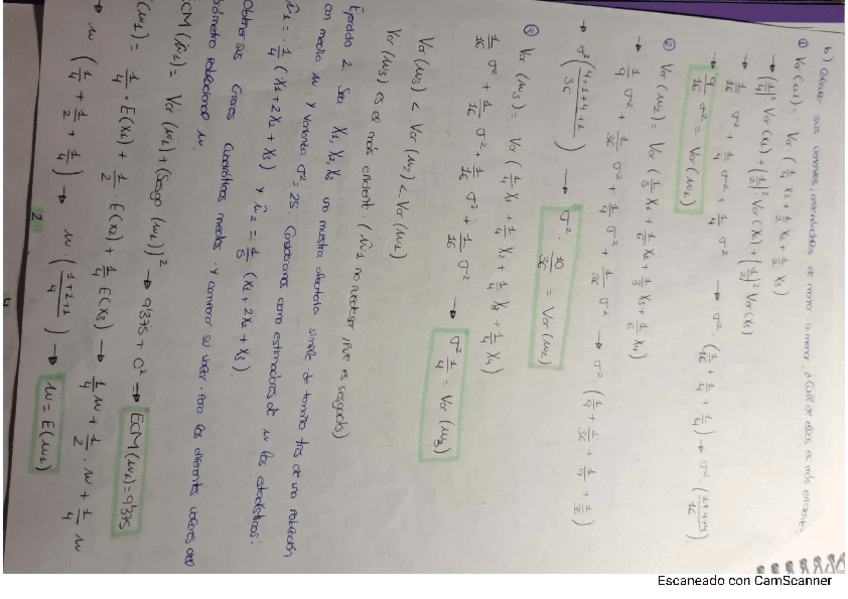 b) Calcular sus varianzas, ordenándolas de mayor a menor. ¿Cuál de ellos es más eficiente?
① Var (μ̂1) = Var (1/4 X1 + 1/2 X2 + 1/2 X3)
→ (1/4)² Var (X1) + (1/2)² Var (X2) + (1/2)² Var (X3)
→ 1/16 σ² + 1/4 σ² + 1/4 σ² → σ² (1/16 + 1/4 + 1/4) → σ² (1+4+4/16)
→ 9/16 σ² = Var (μ̂1)
② Var (μ̂2) = Var (1/3 X1 + 1/6 X2 + 1/3 X3 + 1/6 X4)
→ 1/9 σ² + 1/36 σ² + 1/9 σ² + 1/36 σ² → σ² · (1/9 + 1/36 + 1/9 + 1/36)
→ σ² (4+1+4+1/36) → σ² · 10/36 = Var (μ̂2)
③ Var (μ̂3) = Var (1/4 X1 + 1/4 X2 + 1/4 X3 + 1/4 X4)
1/16 σ² + 1/16 σ² + 1/16 σ² + 1/16 σ² → σ² 1/4 = Var (μ̂3)
Var (μ̂3) < Var (μ̂2) < Var (μ̂1)
Var (μ̂3) es el más eficient. (μ̂1 no pue es sesgado)
Ejercicio 2. Sea X1, X2, X3 una muestra aleatoria simple de tamaño tres de una población
con media μ y varianza σ² = 25. Consideramos como estimadores de μ los estadísticos:
μ̂1 = 1/4 (X1 + 2X2 + X3) y μ̂2 = 1/5 (X1 + 2X2 + X3).
Obtener sus Errores Cuadráticos medios y comparar su valor para los diferentes valores del
parámetro poblacional μ.
ECM (μ̂1) = Var (μ̂1) + (Sesgo (μ̂1))² → 9'375 + 0² → ECM (μ̂1) = 9'375
E(μ̂1) = 1/4 · E(X1) + 1/2 · E(X2) + 1/4 E(X3) → 1/4 μ + 1/2 · μ + 1/4 μ
→ μ (1/4 + 1/2 + 1/4) → μ · (1+2+1/4) → μ = E(μ̂1)
2
Escaneado con CamScanner